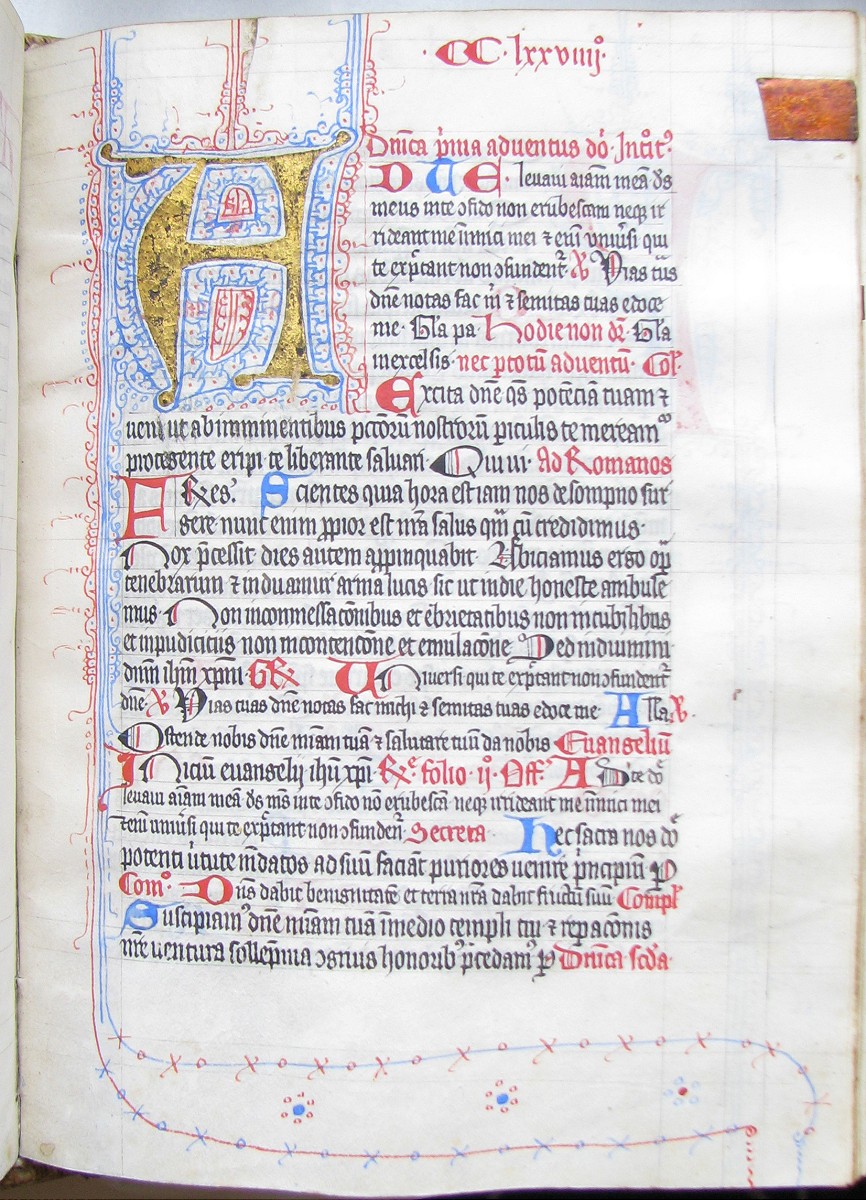 CC lxxviiijº
Dnica p'ma adventus do Incit'
A D TE levavi aiam mea ds
meus in te ɔfido non erubescam neqz ir
rideant me inimici mei ⁊ eni univ'si qui
te exp̄ctant non ɔfundent' V Vias tuas
dne notas fac m ⁊ semitas tuas edoce
me Gla pa Hodie non dr Gla
in excelsis nec p totu adventu Col'
Excita dne qs potēciam tuam ⁊
veni ut ab imminentibus pctorū nostrorū piculis te meream'
protegente eripi te liberante salvari Qui vi Ad Romanos
FRes Scientes quia hora est iam nos de sompno sur
gere nunc enim ppior est nra salus qm cu credidimus
Nox p̄cessit dies autem appinquabit Abiciamus ergo opa
tenebrarum ⁊ induamur arma lucis sic ut in die honeste ambule
mus Non in conmessacōnibus et ebrietatibus non in cubilibus
et inpudiciciis non in contencōne et emulacōne Sed induimini
dnm ihm xpm GR Universi qui te exp̄ctant non ɔfundent'
dne V Vias tuas dne notas fac michi ⁊ semitas tuas edoce me Alla V
Ostende nobis dne miam tuā ⁊ salutare tuū da nobis Euangeliū
Iniciū euangelij ihu xpi Re folio ijº Off' Ad te do
levavi aiam meā ds ms in te ɔfido nō erubescā neqz irrideant me inimici mei
⁊ eni univ'si qui te exp̄ctant non ɔfunden' Secreta Hec sacra nos do
potenti v'tute mūdatos ad suū faciāt puriores venire p'ncipiū P
Com' Dns dabit benignitatē et terra nra dabit fructū suū Compl'
Suscipiam' dne miam tuā in medio templi tui ⁊ repacōnis
nre ventura sollempnia ɔgruis honorib' p̄cedam' P Dnica scda